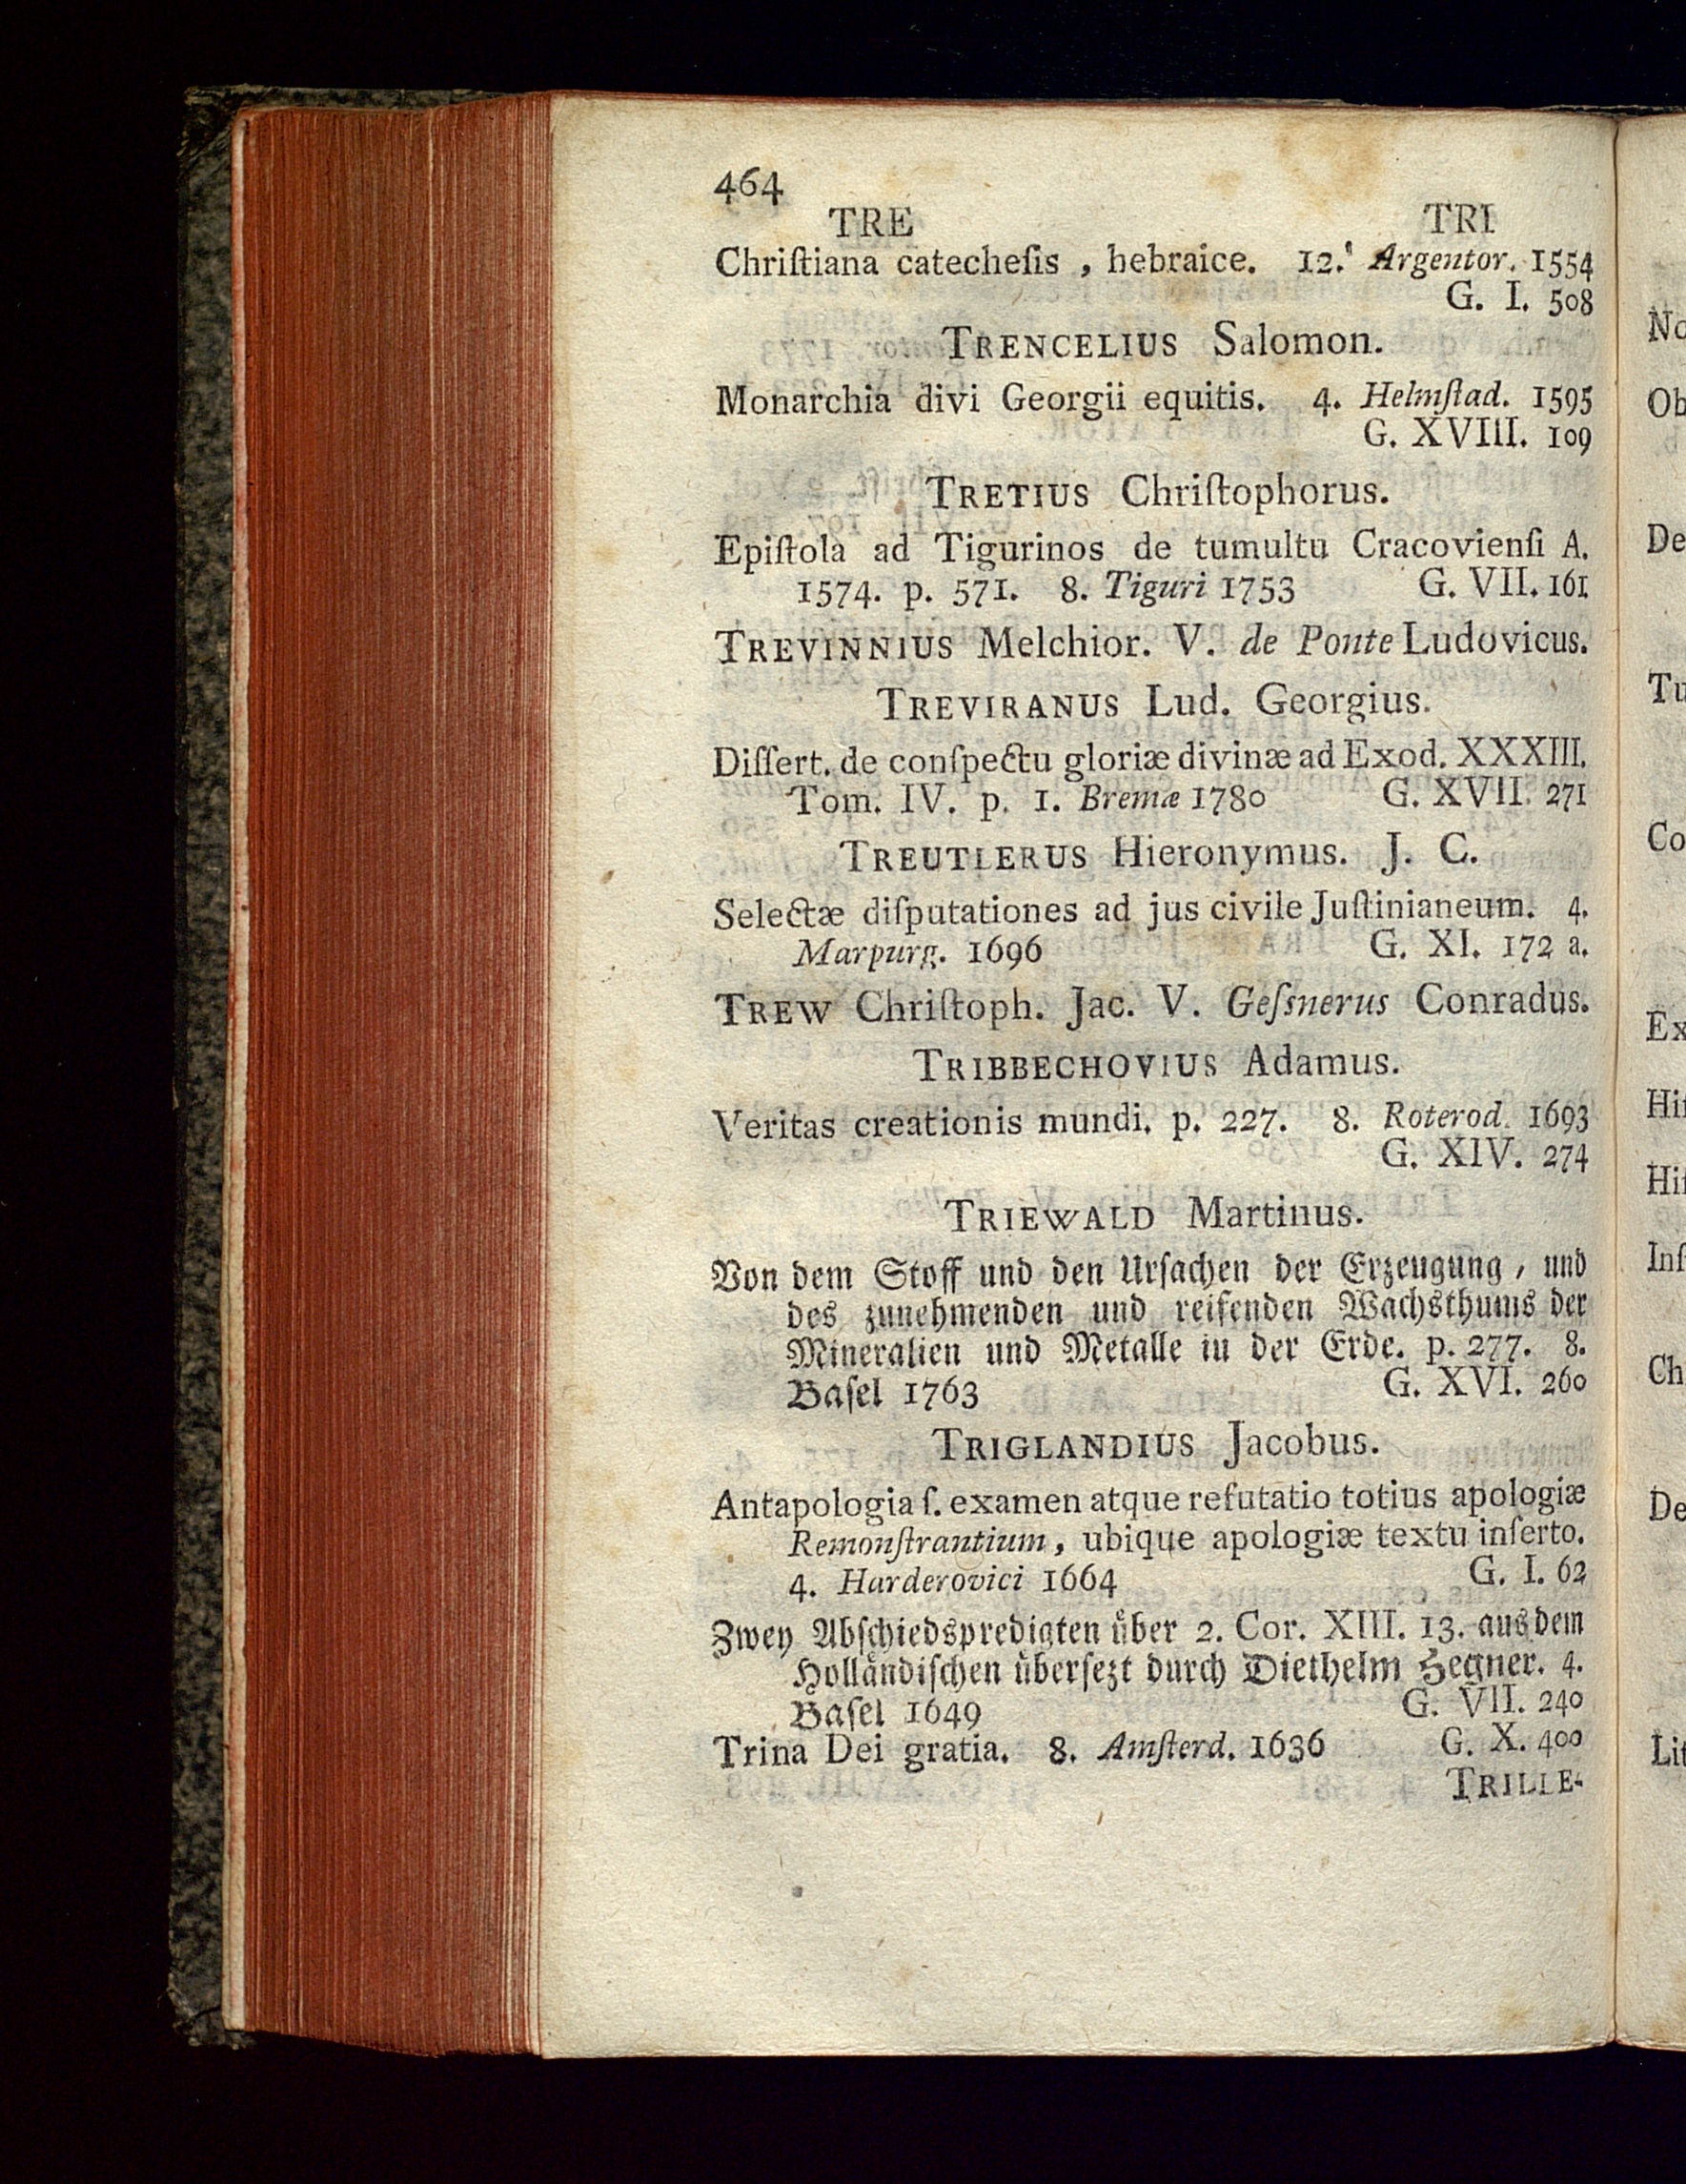 464
TRE TRI
Chriſtiana catecheſis , hebraice. 12. Argentor. 1554
G. I. 508
TRENCELIUS Salomon.
Monarchia divi Georgii equitis. 4. Helmſtad. 1595
G. XVIII. 109
TRETIUS Chriſtophorus.
Epiſtola ad Tigurinos de tumultu Cracovienſi A.
1574. p. 571. 8. Tiguri 1753 G. VII. 161
TREVINNIUS Melchior. V. de Ponte Ludovicus.
TREVIRANUS Lud. Georgius.
Diſſert. de conſpectu gloriæ divinæ ad Exod. XXXIII.
Tom. IV. p. 1. Bremæ 1780 G. XVII. 271
TREUTLERUS Hieronymus. J. C.
Selectæ diſputationes ad jus civile Juſtinianeum. 4.
Marpurg. 1696 G. XI. 172 a.
TREW Chriſtoph. Jac. V. Geſsnerus Conradus.
TRIBBECHOVIUS Adamus.
Veritas creationis mundi. p. 227. 8. Roterod. 1693
G. XIV. 274
TRIEWALD Martinus.
Von dem Stoff und den Urſachen der Erzeugung, und
des zunehmenden und reifenden Wachsthums der
Mineralien und Metalle in der Erde. p. 277. 8.
Baſel 1763 G. XVI. 260
TRIGLANDIUS Jacobus.
Antapologia ſ. examen atque refutatio totius apologiæ
Remonſtrantium, ubique apologiæ textu inſerto.
4. Harderovici 1664 G. I. 62
Zwey Abſchiedspredigten uͤber 2. Cor. XIII. 13. aus dem
Hollaͤndiſchen uͤberſezt durch Diethelm Hegner. 4.
Baſel 1649 G. VII. 240
Trina Dei gratia. 8. Amſterd. 1636 G. X. 400
TRILLE-
No
Ob
De
Tu
Co
Ex
Hiſ
Hiſ
Inſ
Ch
De
Lit